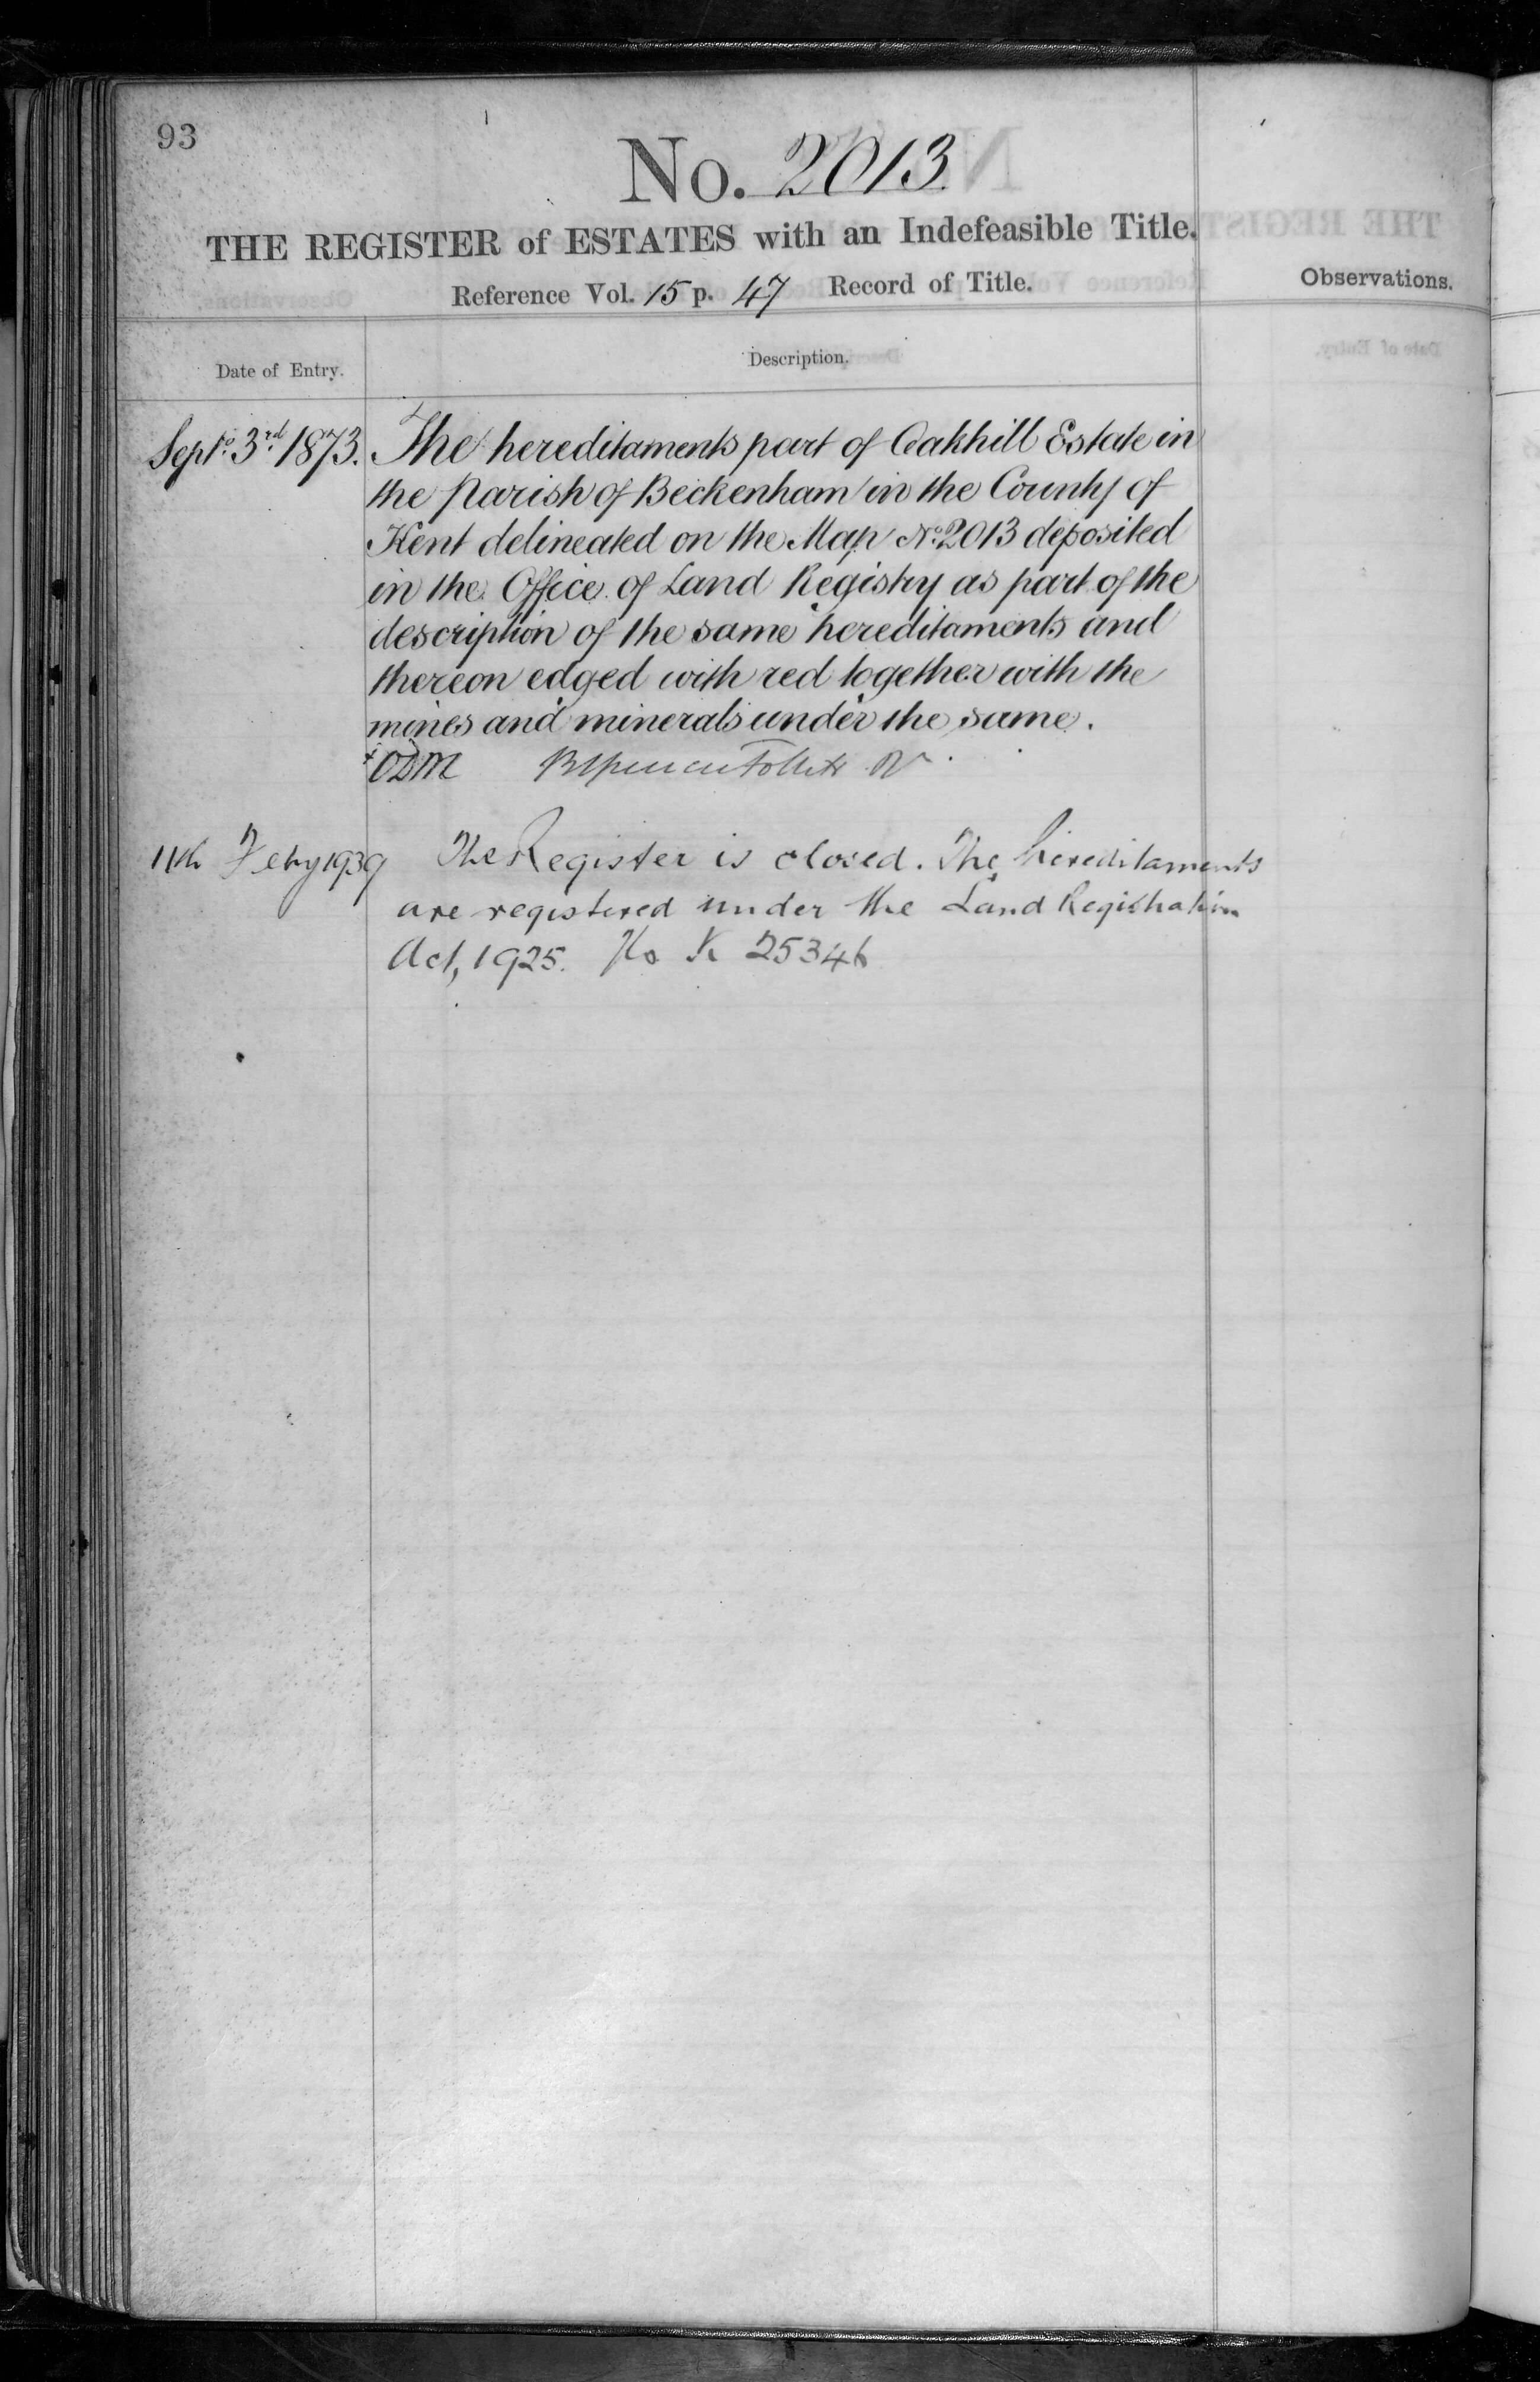 93
No. 2013.
THE REGISTER of ESTATES with an Indefeasible Title.
Reference Vol. 15 p. 47 Record of Title.
Observations.
Date of Entry.
Description.
Septr. 3rd 1873. The hereditaments part of Oakhill Estate in
the Parish of Beckenham in the County of
Kent delineated on the Map No. 2013 deposited
in the Office of Land Registry as part of the
description of the same hereditaments and
thereon edged with red together with the
mines and minerals under the same.
Follett R
11th Feby 1939 The Register is closed. The hereditaments
are registered under the Land Registration
Act, 1925. No K 25346